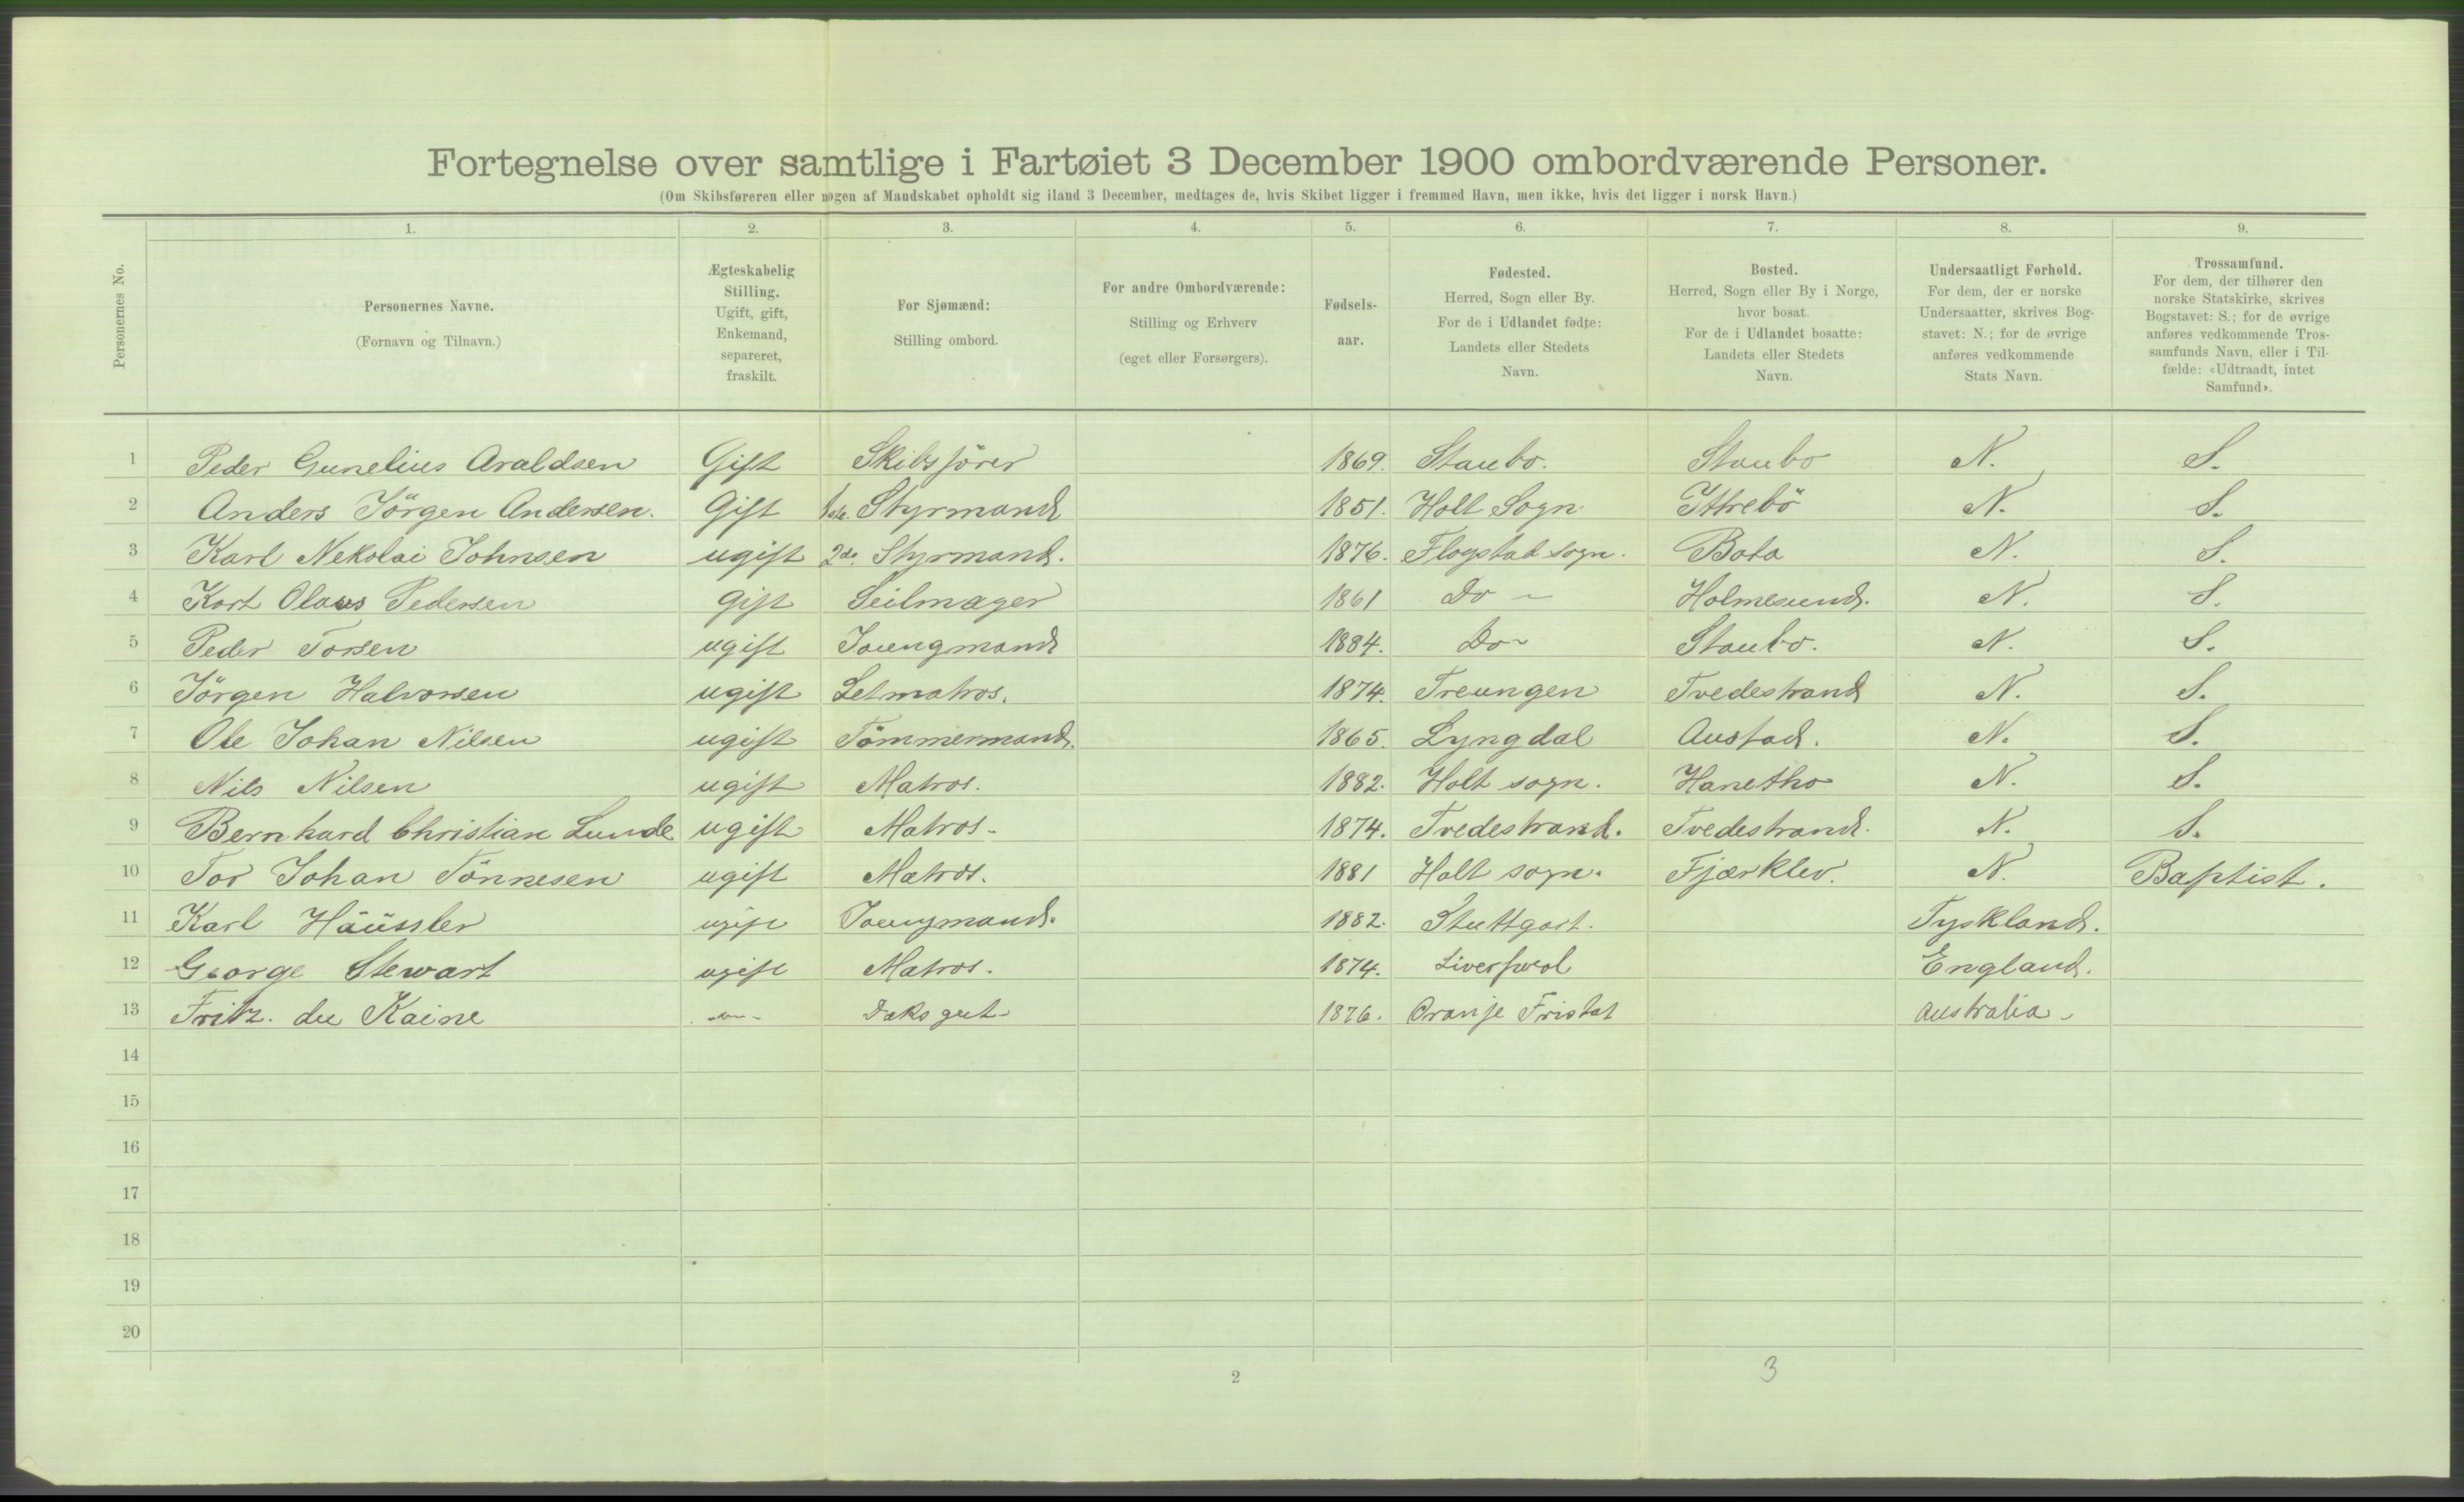 Fortegnelse over samtlige i Fartøiet 3 December 1900 ombordværende Personer.
(Om Skibsføreren eller nogen af Mandskabet opholdt sig iland 3 December, medtages de, hvis Skibet ligger i fremmed Havn, men ikke, hvis det ligger i norsk Havn.)
Personernes No. 1. 2. 3. 4. 5. 6. 7. 8. 9.
Personernes Navne. (Fornavn og Tilnavn.)
Ægteskabelig Stilling. Ugift, gift, Enkemand, separeret, fraskilt.
For Sjømænd: Stilling ombord.
For andre Ombordværende: Stilling og Erhverv (eget eller Forsørgers).
Fødsels-aar.
Fødested. Herred, Sogn eller By. For de i Udlandet fødte: Landets eller Stedets Navn.
Bosted. Herred, Sogn eller By i Norge, hvor bosat. For de i Udlandet bosatte: Landets eller Stedets Navn.
Undersaatligt Forhold. For dem, der er norske Undersaatter, skrives Bogstavet: N.; for de øvrige anføres vedkommende Stats Navn.
Trossamfund. For dem, der tilhører den norske Statskirke, skrives Bogstavet: S.; for de øvrige anføres vedkommende Trossamfunds Navn, eller i Tilfælde: «Udtraadt, intet Samfund».
1 Peder Gunelius Araldsen Gift Skibsförer 1869. Staubo. Staubo N. S.
2 Anders Jörgen Andersen. Gift 1ste. Styrmand 1851. Holt Sogn Yttrebö N. S.
3 Karl Nekolai Johnsen ugift 2de. Styrmand. 1876. Flogstad sogn. Bota N. S.
4 Kort Olaus Pedersen gift Seilmager 1861 Do ~ Holmesund. N. S.
5 Peder Torsen ugift Joungmand 1884. Do ~ Staubo. N. S.
6 Jörgen Halvorsen ugift Letmatros. 1874. Treungen Tvedestrand N. S.
7 Ole Johan Nilsen ugift Tömmermand. 1865. Lyngdal Austad. N. S.
8 Nils Nilsen ugift Matros. 1882. Holt sogn. Hanetho N. S.
9 Bernhard Christian Lunde ugift Matros. 1874. Tvedestrand. Tvedestrand. N. S.
10 Tor Johan Tönnesen ugift Matros. 1881 Holt sogn. Fjærklev. N. Baptist.
11 Karl Häüssler ugift Joungmand. 1882. Stuttgart. Tyskland.
12 George Stewart ugift Matros. 1874. Liverpool England.
13 Fritz. du Kaine Daksgut 1876. Oranje Fristat Australia
14
15
16
17
18
19
20
2 3